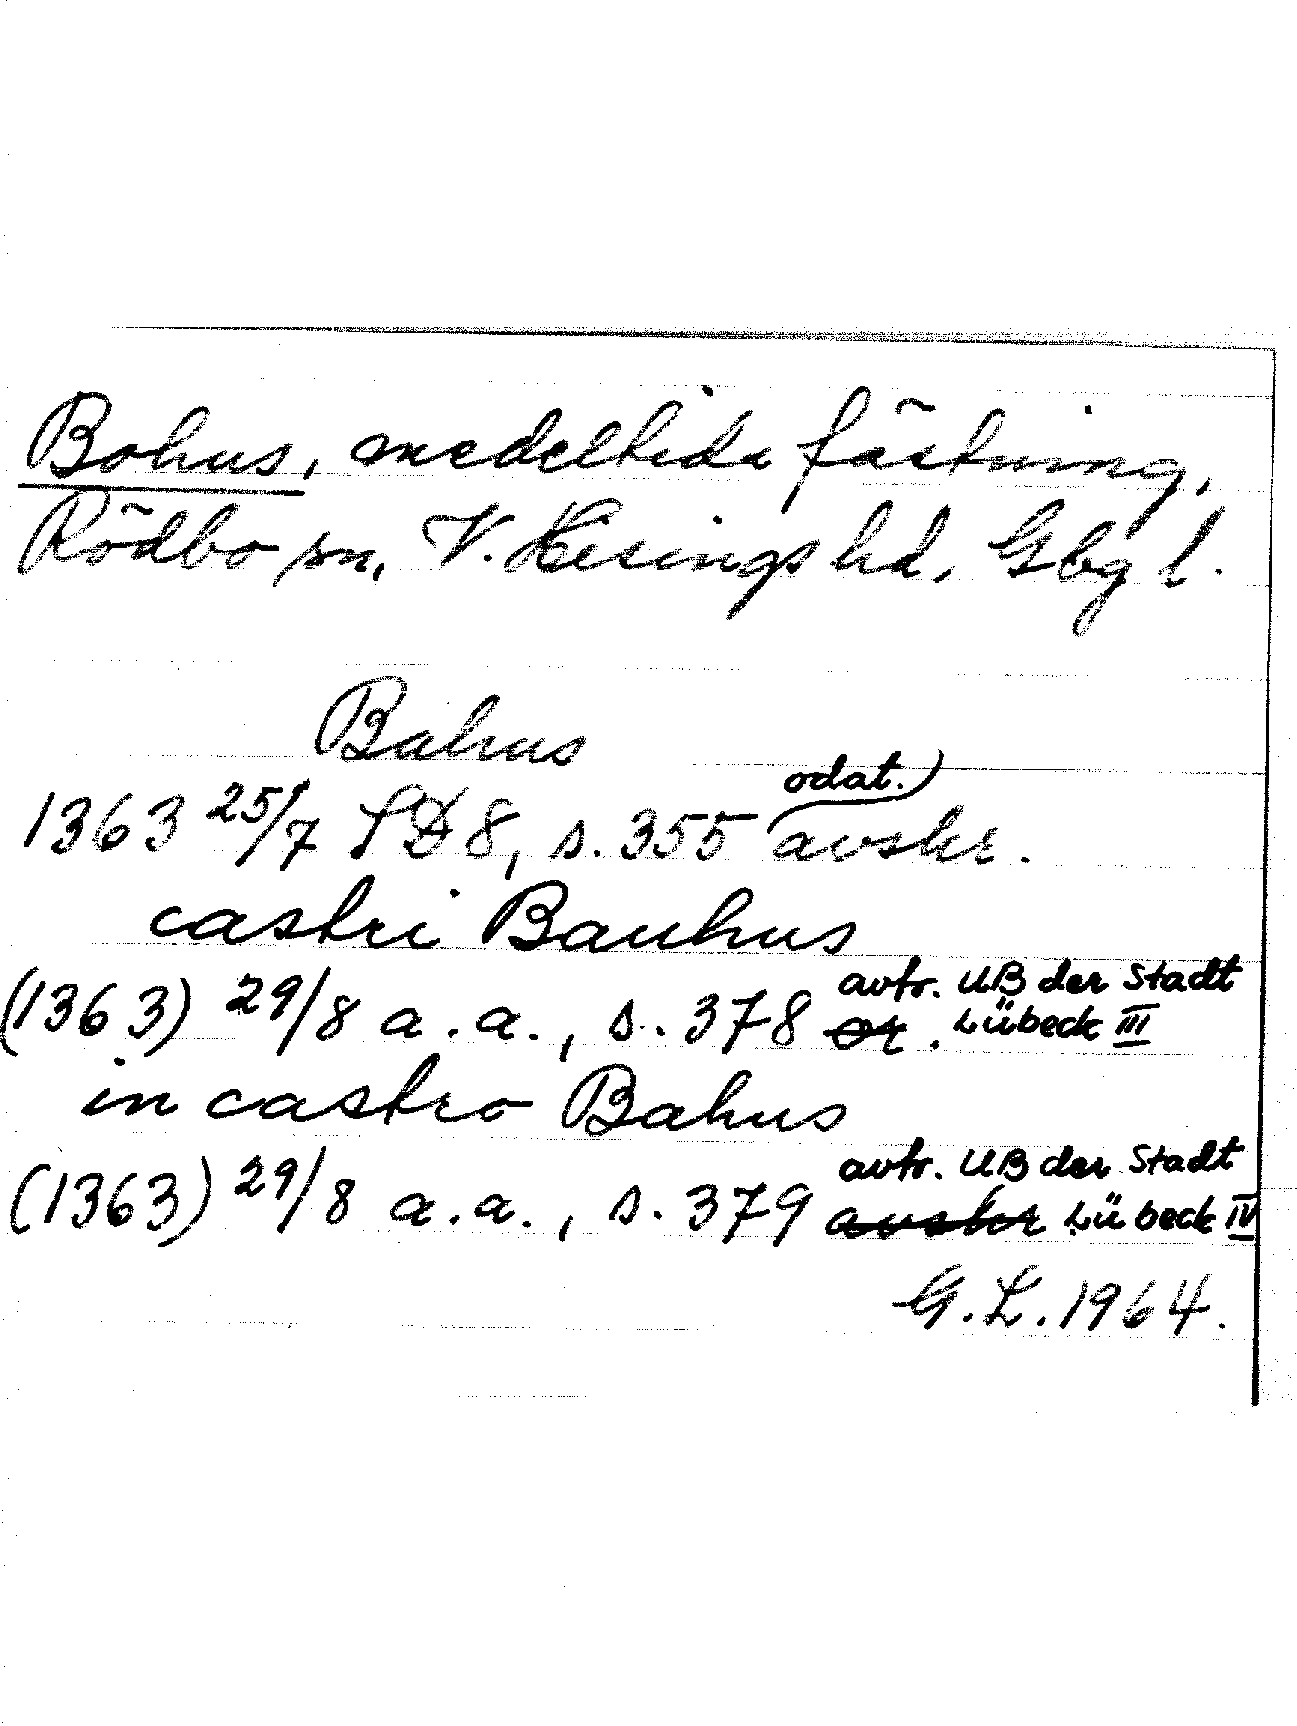 Bohus, medeltida fästning,
Rödbo sn, V. Hisings hd, Gbg l.
Bahus
odat.
1363 25/7 SD 8, s. 355 avskr.
castri Bauhus
avtr. UB der Stadt
(1363) 29/8 a.a., s. 378 or. Lübeck III
in castro Bahus
avtr. UB der Stadt
(1363) 29/8 a.a., s. 379 avskr Lübeck IV
G.L. 1964.